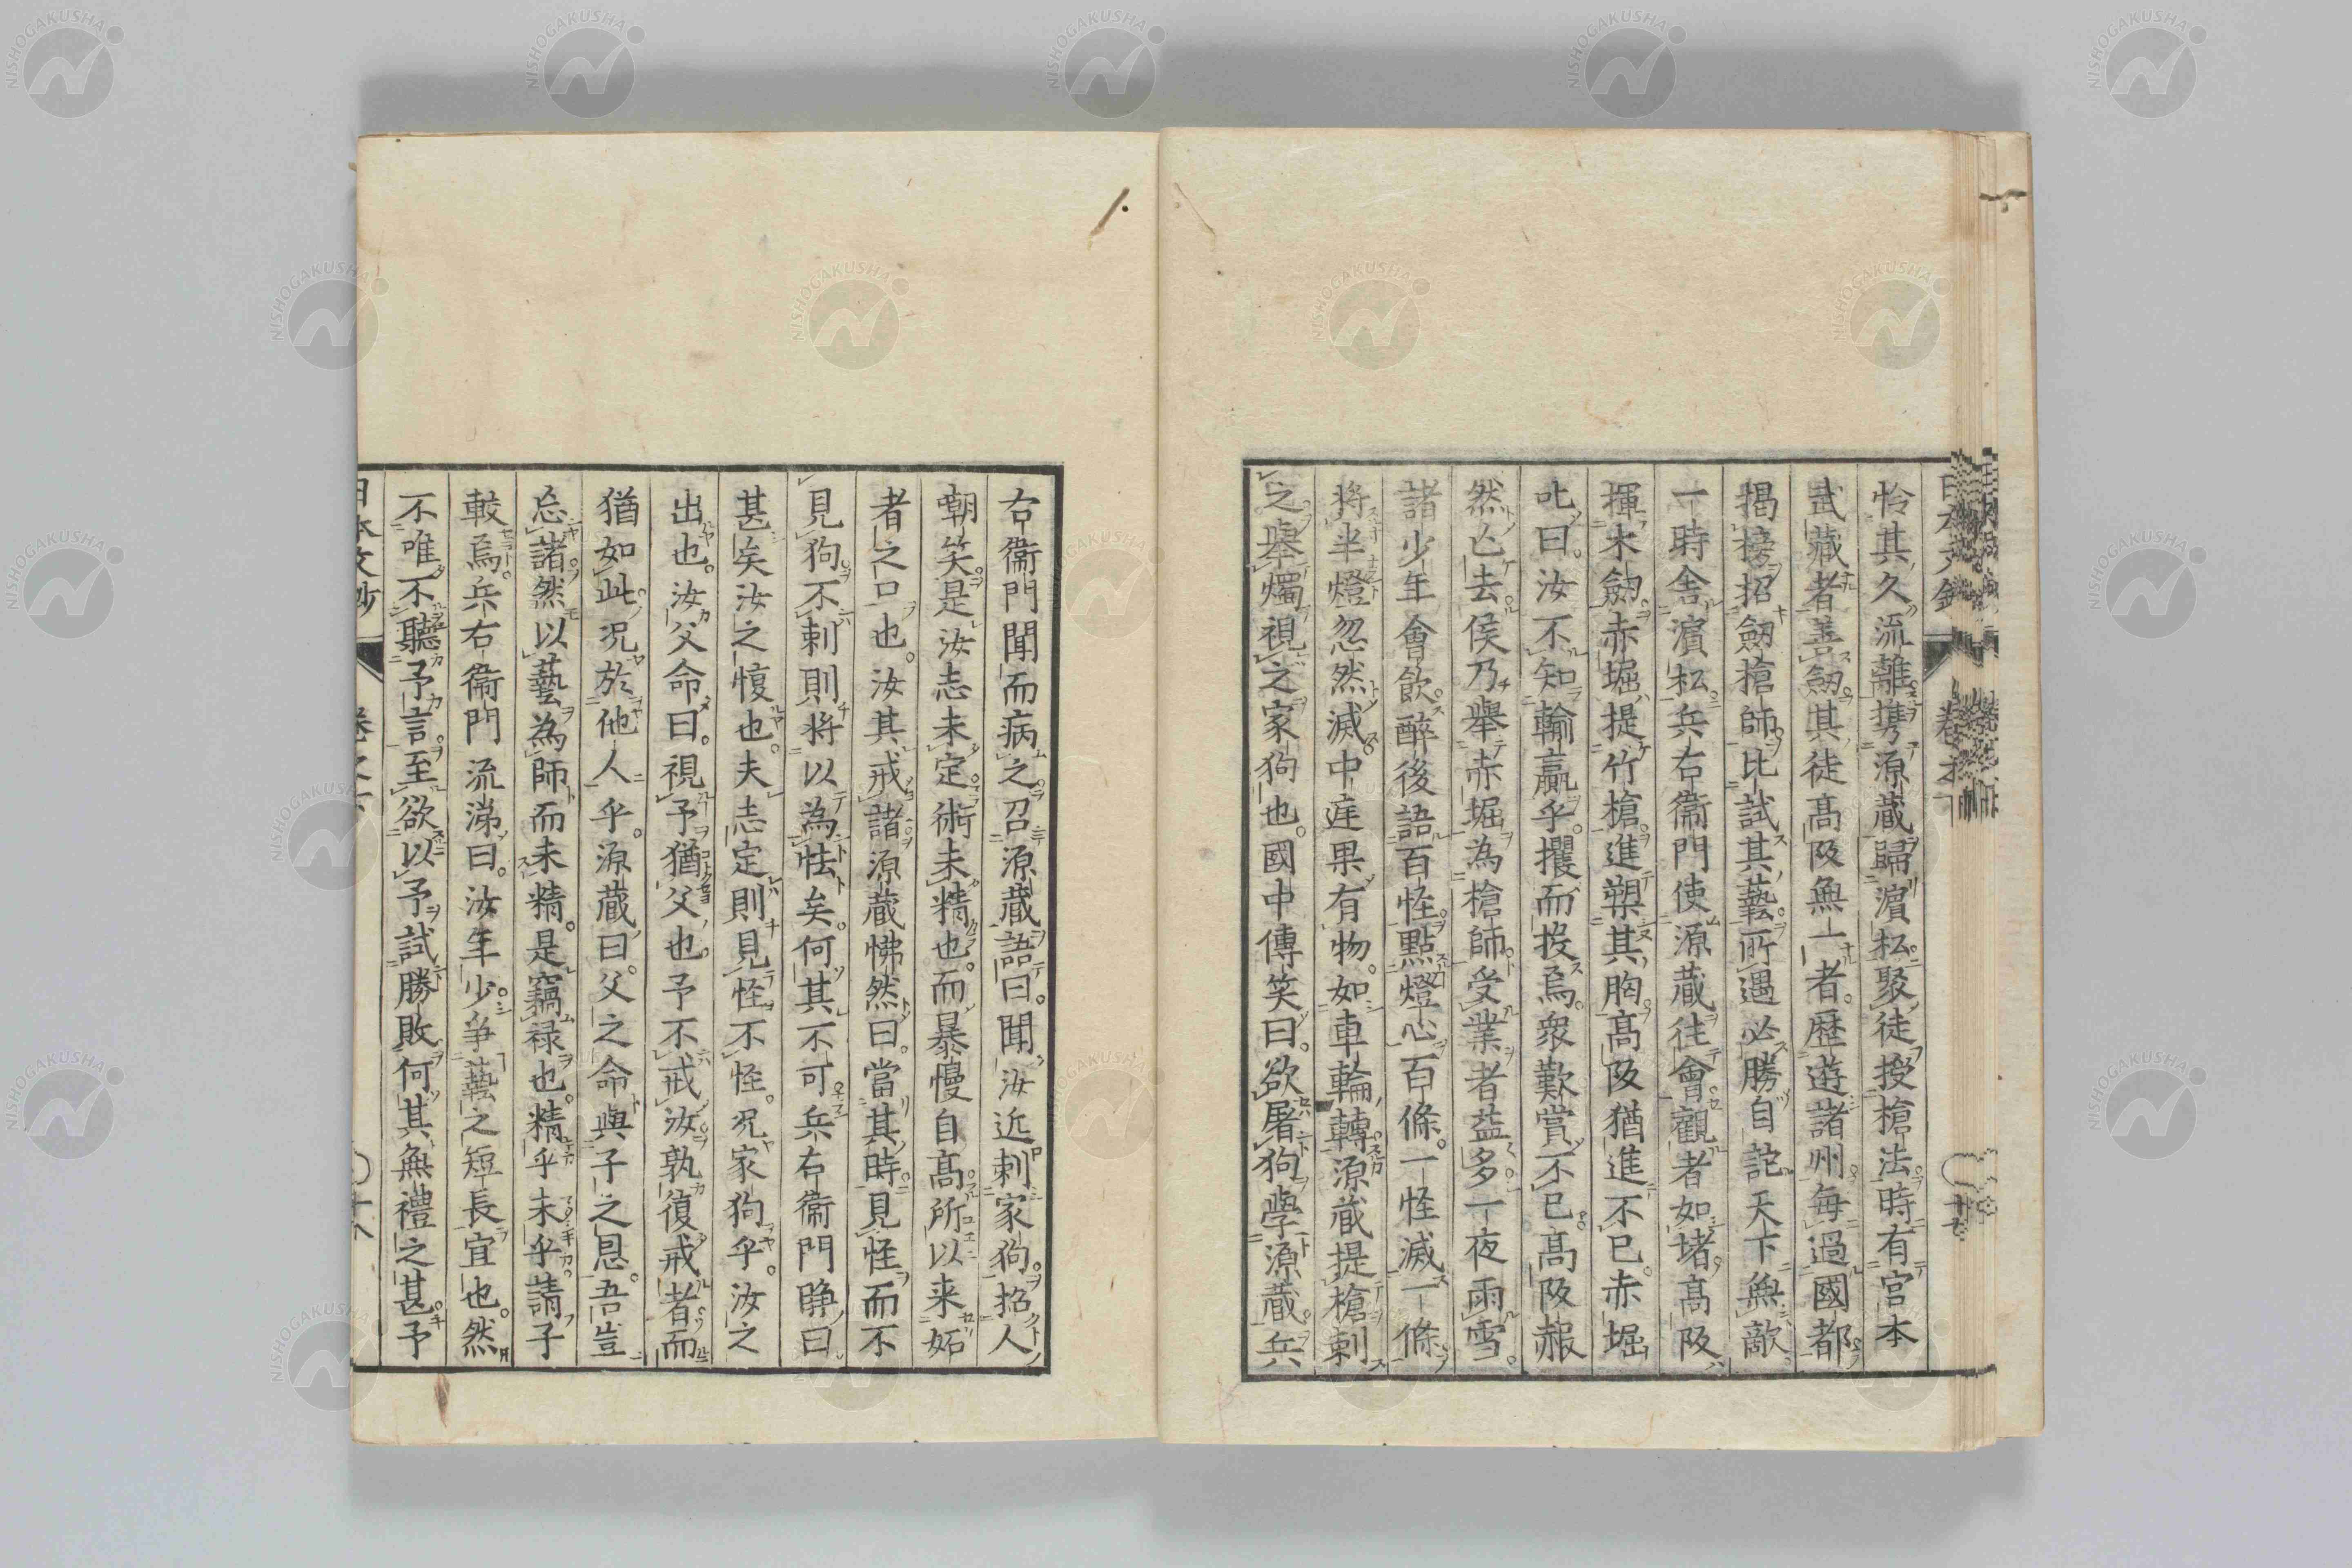 怜其久流離携源蔵歸濵松聚徒授槍法時有宮本
武藏者善劔其徒高阪無一者歴遊諸州毎過國都
揭榜招劔槍師比試其藝所遇必勝自詫天下無敵
一時舎濵松兵右衞門使源蔵往會觀者如堵高阪
揮木劔赤堀提竹槍進槊其胸高阪猶進不已赤堀
叱曰汝不知輸贏乎攫而投焉衆歎賞不已高阪赧
然亾去侯乃舉赤堀為槍師受業者益多一夜雨雪
諸少年會飲醉後語百怪點燈心百條一怪滅一條
將半燈忽然滅中庭果有物如車輪轉源蔵提槍刺
之舉燭視之家狗也國中傳笑曰欲屠狗學源蔵兵
右衞門聞而病之召源蔵語曰聞汝近刺家狗招人
嘲笑是汝志未定術未精也而暴慢自高所以来妬
者之口也汝其戒諸源蔵怫然曰當其時見怪而不
見狗不刺則將以為怯矣何其不可兵右衞門睜曰
甚矣汝之愎也夫志定則見怪不怪况家狗乎汝之
出也汝父命曰視予猶父也予不戒汝孰復戒者而
猶如此况於他人乎源蔵曰父之命與子之恩吾豈
忘諸然以藝為師而未精是竊禄也精乎未乎請子
較焉兵右衞門流涕曰汝年少爭藝之短長宜也然
不唯不聽予言至欲以予試勝敗何其無禮之甚予
日本文鈔